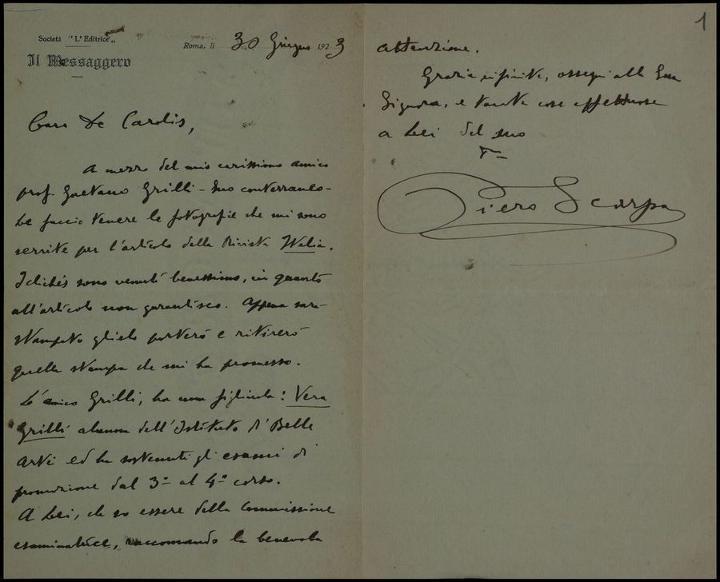 Società "L'Editrice"
Il Messaggero
Roma, li 30 Giugno 1923
Caro De Carolis,
A mezzo del mio carissimo amico
prof. Gaetano Grilli - suo conterraneo -
Le faccio tenere le fotografie che mi sono
servite per l'articolo della Rivista Italia.
I clichés sono venuti benissimo, in quanto
all'articolo non garantisco. Appena sarà
stampato glielo porterò e ritirerò
quella stampa che mi ha promesso.
L'amico Grilli, ha una figliuola: Vera
Grilli alunna dell'Istituto di Belle
Arti ed ha sostenuti gli esami di
promozione dal 3° al 4° corso.
A Lei, che so essere della Commissione
esaminatrice, raccomando la benevola
1
attenzione.
Grazie infinite, ossequi alla Sua
Signora, e tante cose affettuose
a Lei del suo
Piero Scarpa